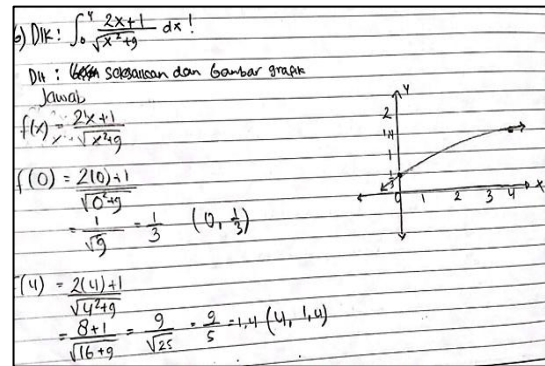 b) DIK : ∫₀⁴ 2x+1 / √x²+9 dx !
Dit : Selesaikan dan Gambar grafik
Jawab
f(x) = 2x+1 / √x²+9
f(0) = 2(0)+1 / √0²+9
= 1/√9 = 1/3 (0, 1/3)
f(4) = 2(4)+1 / √4²+9
= 8+1 / √16+9 = 9/√25 = 9/5 = 1,4 (4, 1,4)
y
2
1,4
1
1/3
0 1 2 3 4 x